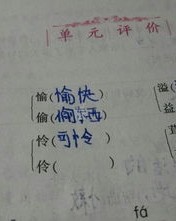 单元评价
愉(愉快) 溢(
偷(偷东西) 益
怜(可怜)
伶( )
fá